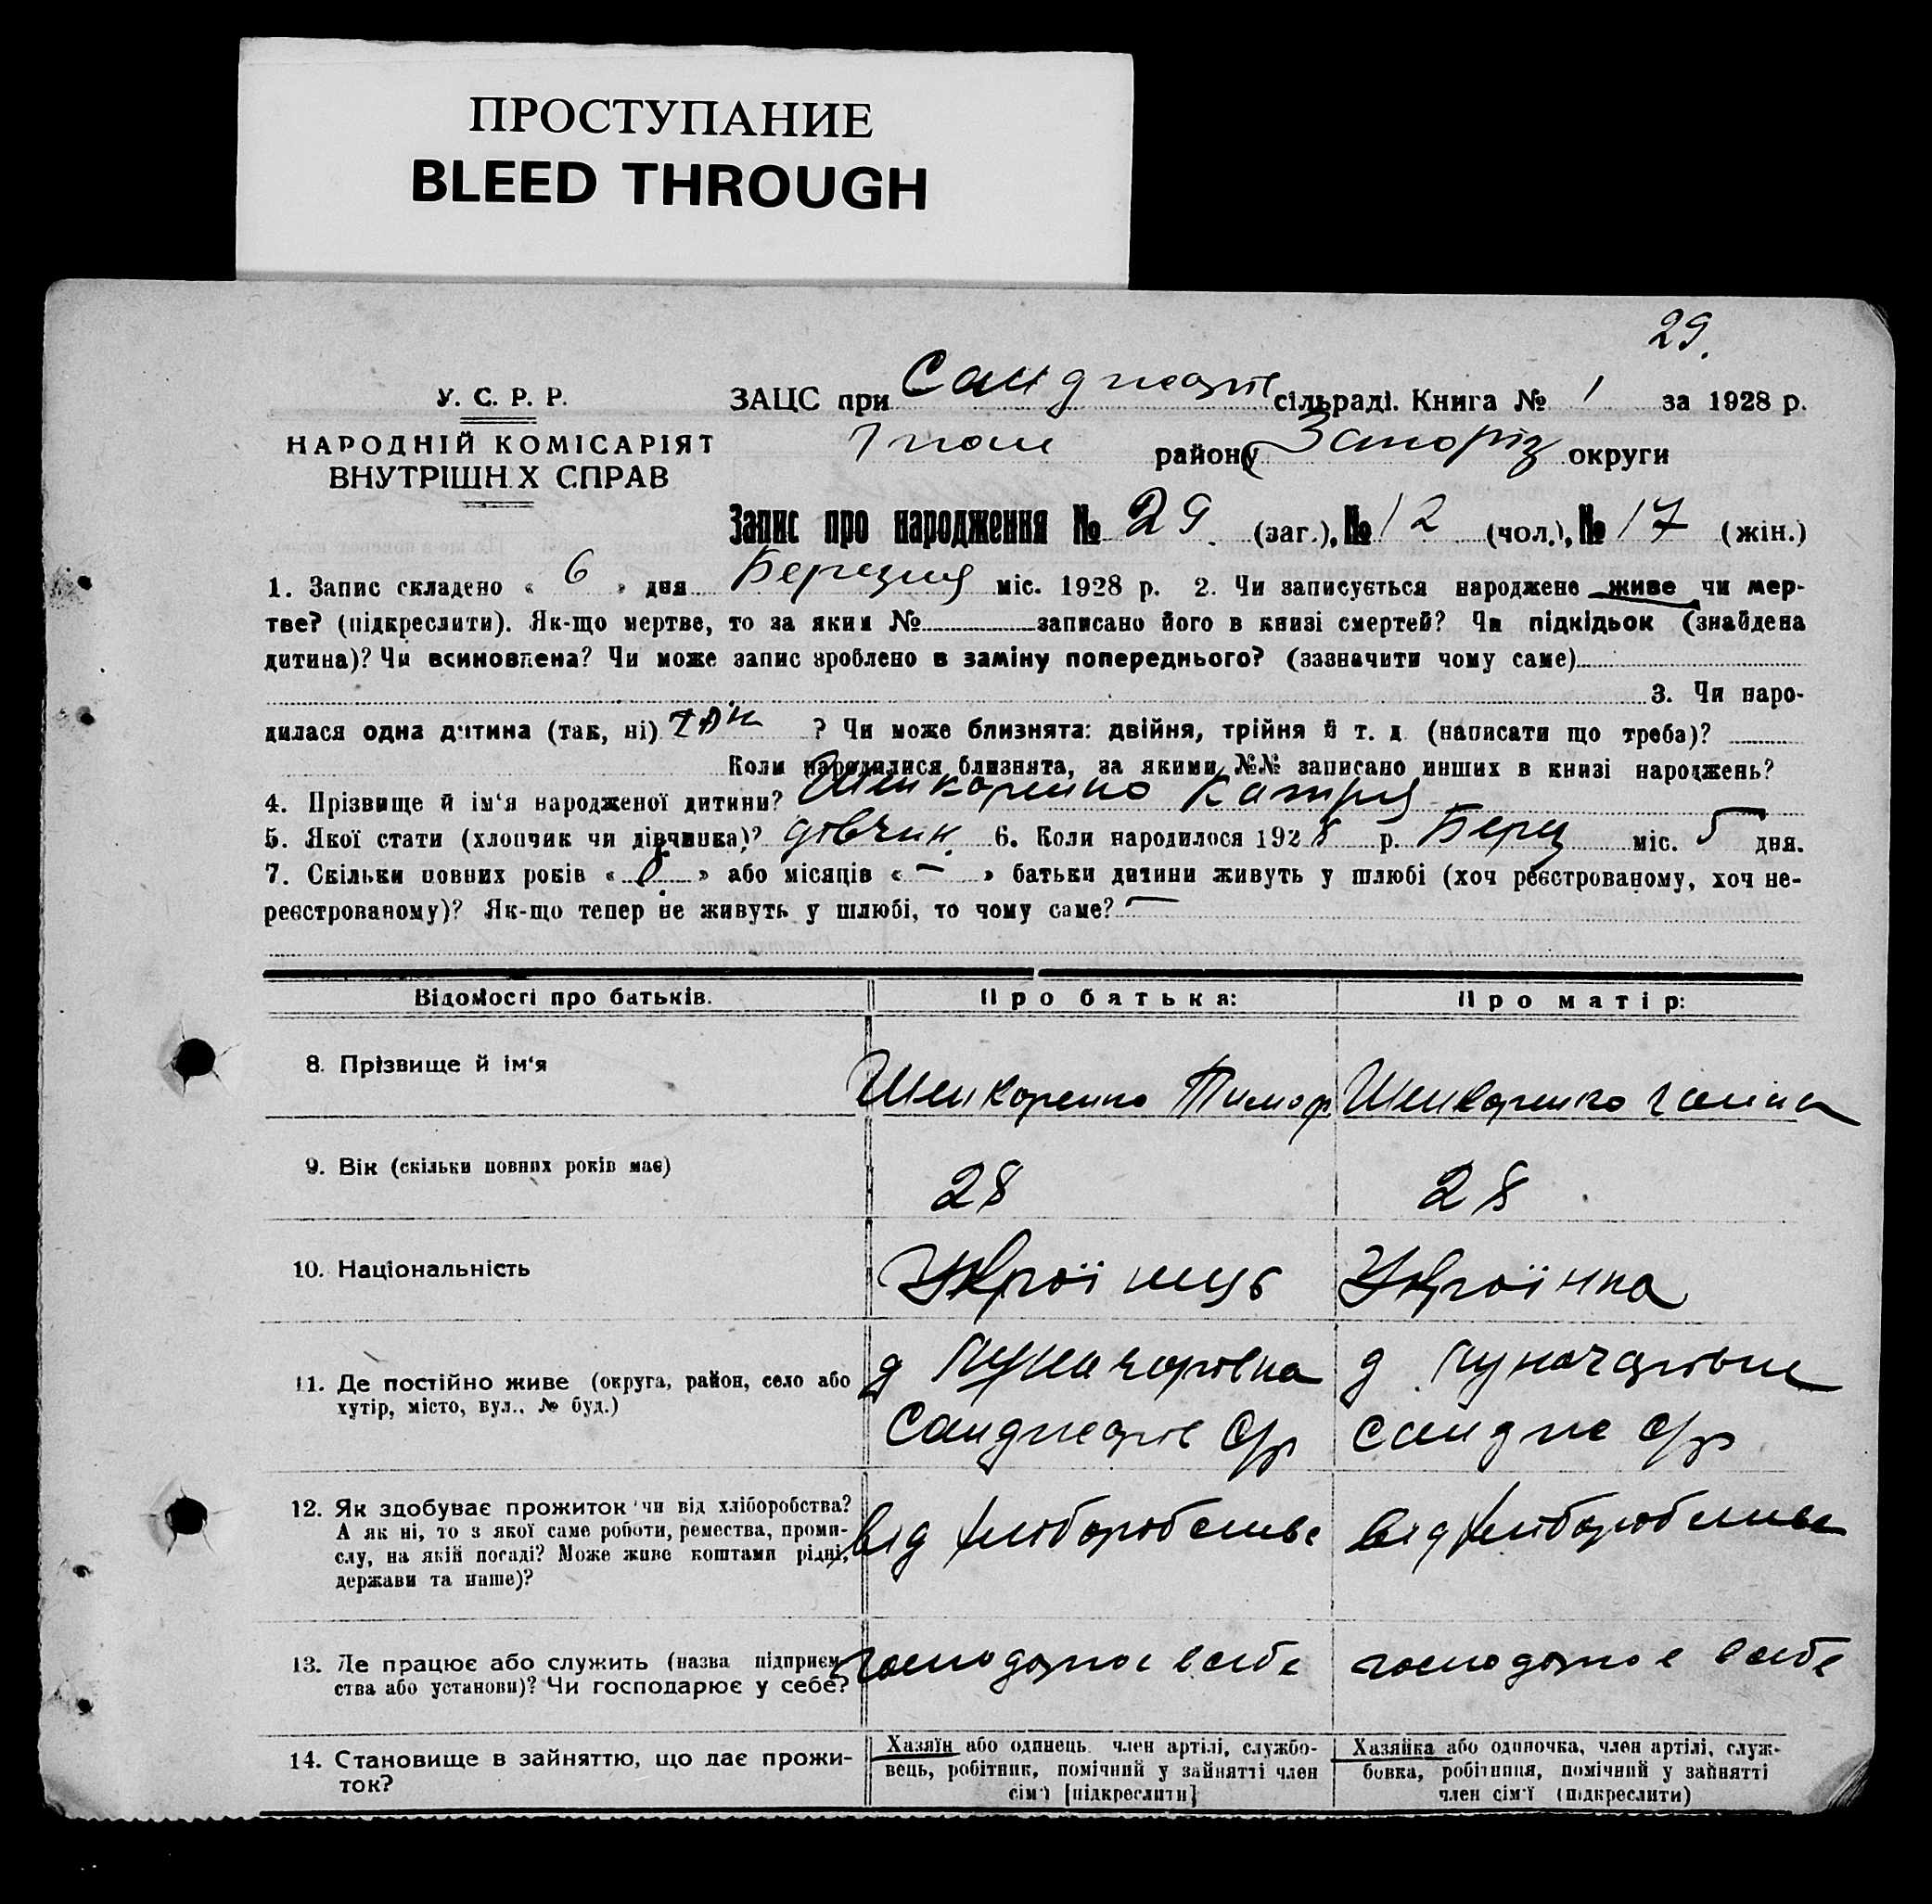 ПРОСТУПАНИЕ
BLEED THROUGH
29.
У. С. Р. Р.
НАРОДНІЙ КОМІСАРІЯТ
ВНУТРІШН.Х СПРАВ
ЗАЦС при сільраді. Книга № 1 за 1928 р.
району Запоріз округи
Запис про народження № 29 (заг.), № 12 (чол.), № 17 (жін.)
1. Запис складено « 6 » дня Березня міс. 1928 р. 2. Чи записується народжене живе чи мер-
тве? (підкреслити). Як-що мертве, то за яким № записано його в книзі смертей? Чи підкідьок (знайдена
дитина)? Чи всиновлена? Чи може запис зроблено в заміну попереднього? (зазначити чому саме)
3. Чи наро-
дилася одна дитина (так, ні) так ? Чи може близнята: двійня, трійня й т. д. (написати що треба)?
Коли народилися близнята, за якими №№ записано инших в книзі народжень?
4. Прізвище й ім‘я народженої дитини? Шенкоренко Катря
5. Якої статі (хлопчик чи дівчинка)? дівчин. 6. Коли народилося 1928 р. Берез міс. 5 дня.
7. Скільки повних років « 8 » або місяців « — » батьки дитини живуть у шлюбі (хоч реєстрованому, хоч не-
реєстрованому)? Як-що тепер не живуть у шлюбі, то чому саме? —
Відомості про батьків. Про батька: Про матір:
8. Прізвище й ім‘я Шенкоренко Тимоф Шенкоренко Галина
9. Вік (скільки повних років має) 28 28
10. Національність Українець Українка
11. Де постійно живе (округа, район, село або д Луначарівка д Луначарівка
хутір, місто, вул., № буд.) с/р с/р
12. Як здобуває прожиток чи від хліборобства? від хліборобства від хліборобства
А як ні, то з якої саме роботи, ремества, проми-
слу, на якій посаді? Може живе коштами рідні,
держави та инше)?
13. Де працює або служить (назва підприєм- господарює в себе господарює в себе
ства або установи)? Чи господарює у себе?
14. Становище в зайняттю, що дає прожи-
ток?
Хазяїн або одинець член артілі, службо-
вець, робітник, помічний у зайнятті член
сім‘ї [підкреслити]
Хазяйка або одиночка, член артілі, служ-
бовка, робітниця, помічний у зайнятті
член сім‘ї (підкреслити)